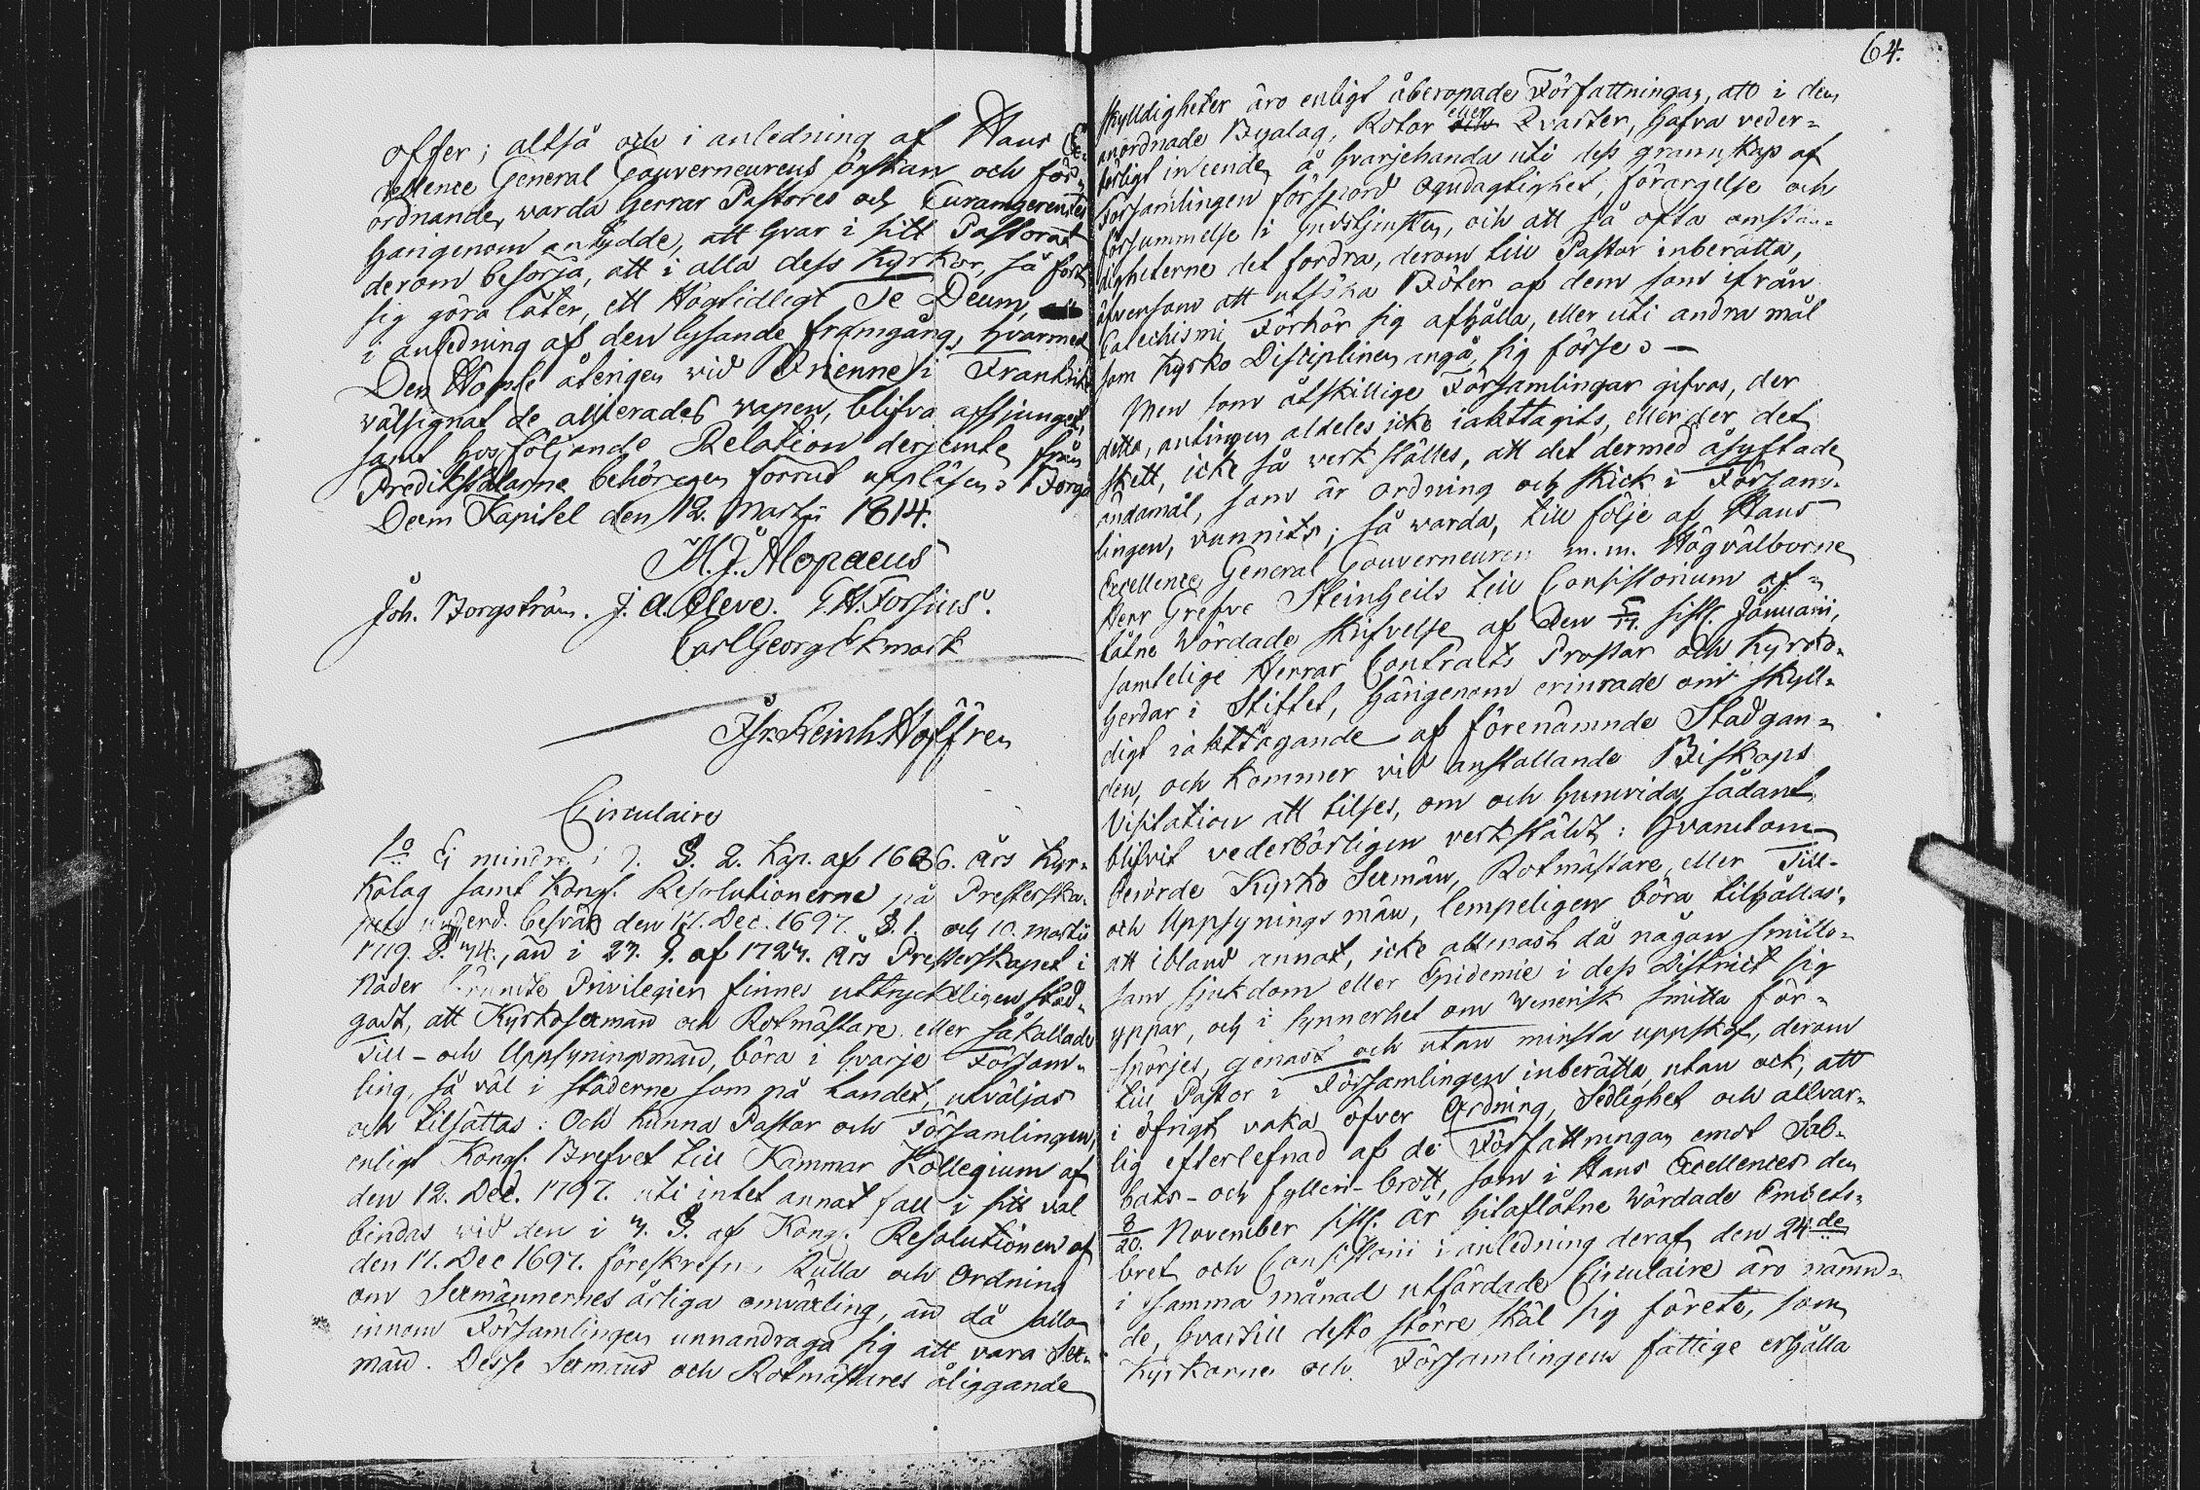 offer; altså och i anledning af Hans Ex-
cellence General Gouverneurens önskan och för-
ordnande, warda Herrar Pastores och Curamgerentes
härigenom antydde, att hvar i sitt Pastorat
derom besörja, att i alla dess Kyrkor, så fort
sig göra låter, ett Högtidligt Te Deum,
i anledning af den lysande framgång, hvarmed
Den Högste återigen wid Brienne i Frankrike
wälsignat de allierades wapen, blifva afsjunget,
samt hosföljande Relation derjemte från
Predikstolarne behörigen förrut uppläsen. Borgo
Dom Kapitel den 12. Martii 1814.
M. J. Alopaeus
Joh. Borgström. J. A. Cleve. G. H. Forsius.
Carl Georg Ekmark
Fr. Reinh. Hoffren
Circulaire
1o Ej mindre i 9. §. 2. Kap. af 1686. års Kyr-
kolag samt Kongl. Resolutionerne på Presterska-
pets underd. besvär den 11. Dec. 1697. §. 1. och 10. Martii
1719. §. 74., än i 23. §. af 1723. års Presterskapet i
Nåder förunte Privilegier finnes uttryckeligen stad-
gadt, att Kyrkosexmän och Rotmästare eller såkallade
Till- och Uppsyningsmän, böra i hvarje Försam-
ling, så väl i städerne som på Landet, utväljas
och tilsättas: Och kunna Pastor och Församlingen,
enligt Kongl. Brefvet till Kammar Kollegium af
den 12. Dec. 1797. uti intet annat fall i sitt val
bindas wid den i 3. §. af Kongl. Resolutionen af
den 11. Dec 1697. föreskrefne Rulla och Ordning
om Sexmännernes årliga omväxling, än då alla
innom Församlingen unnandraga sig att vara Sex-
män. Desse Sexmäns och Rotmästares åliggande
64.
skylldigheter äro enligt åberopade Författningar, att i den
anordnade Byalag, Rotor eller Qvarter, hafva veder-
börligt inseende å hvarjehanda uti dess grannskap af
Församlingen förspord ogudagtighet, förargelse och
försummelse i Gudstjensten, och att så ofta omstän-
digheterne det fordra, derom till Pastor inberätta,
äfvensom att utsöka Böter af dem som ifrån
Catechismi Förhör sig afhålla, eller uti andra mål
som Kyrko Disciplinen angå, sig förse. —
Men som åtskillige Församlingar gifvas, der
detta, antingen alldeles icke iakttagits, eller der det
skett, icke så verkställts, att det dermed åsyftade
ändamål, som är ordning och skick i Försam-
lingen, vunnits; så warda, till följe af Hans
Excellence General Gouverneuren m. m. Högvälborne
Herr Grefve Steinheils till Consistorium af-
låtne Wördade skrifvelse af den 5/17. sistl. Januarii,
samtelige Herrar Contracts Prostar och Kyrko-
herdar i Stiftet, härigenom erinrade om skyll-
digt iakttagande af förenämnde Stadgan-
den, och kommer vid anstallande Biskops
Visitation att tilses, om och hurvida sådant
blifvit vederbörligen verkstäldt: hvarutom
berörde Kyrko Sexmän, Rotmästare, eller Till-
och Uppsyningsmän, lempeligen böra tilhållas,
att ibland annat, icke allenast då någon smitto-
sam sjukdom eller Epidemie i dess District sig
yppar, och i synnerhet om Venerisk smitta för-
spörjes, genast och utan minsta uppskof, derom
till Pastor i Församlingen inberätta, utan ock, att
i öfrigt vaka öfver Ordning, Sedlighet och allvar-
lig efterlefnad af de Författningar emot Sab-
bats- och fylleri-brott, som i Hans Excellences den
8/20. November sistl. år hitaflåtne Wördade Embets-
bref och Consistorii i anledning deraf den 24de
i samma månad utfärdade Circulaire äro nämn-
de, hvartill desto större skäl sig förete, som
Kyrkorne och Församlingens fattige erhålla